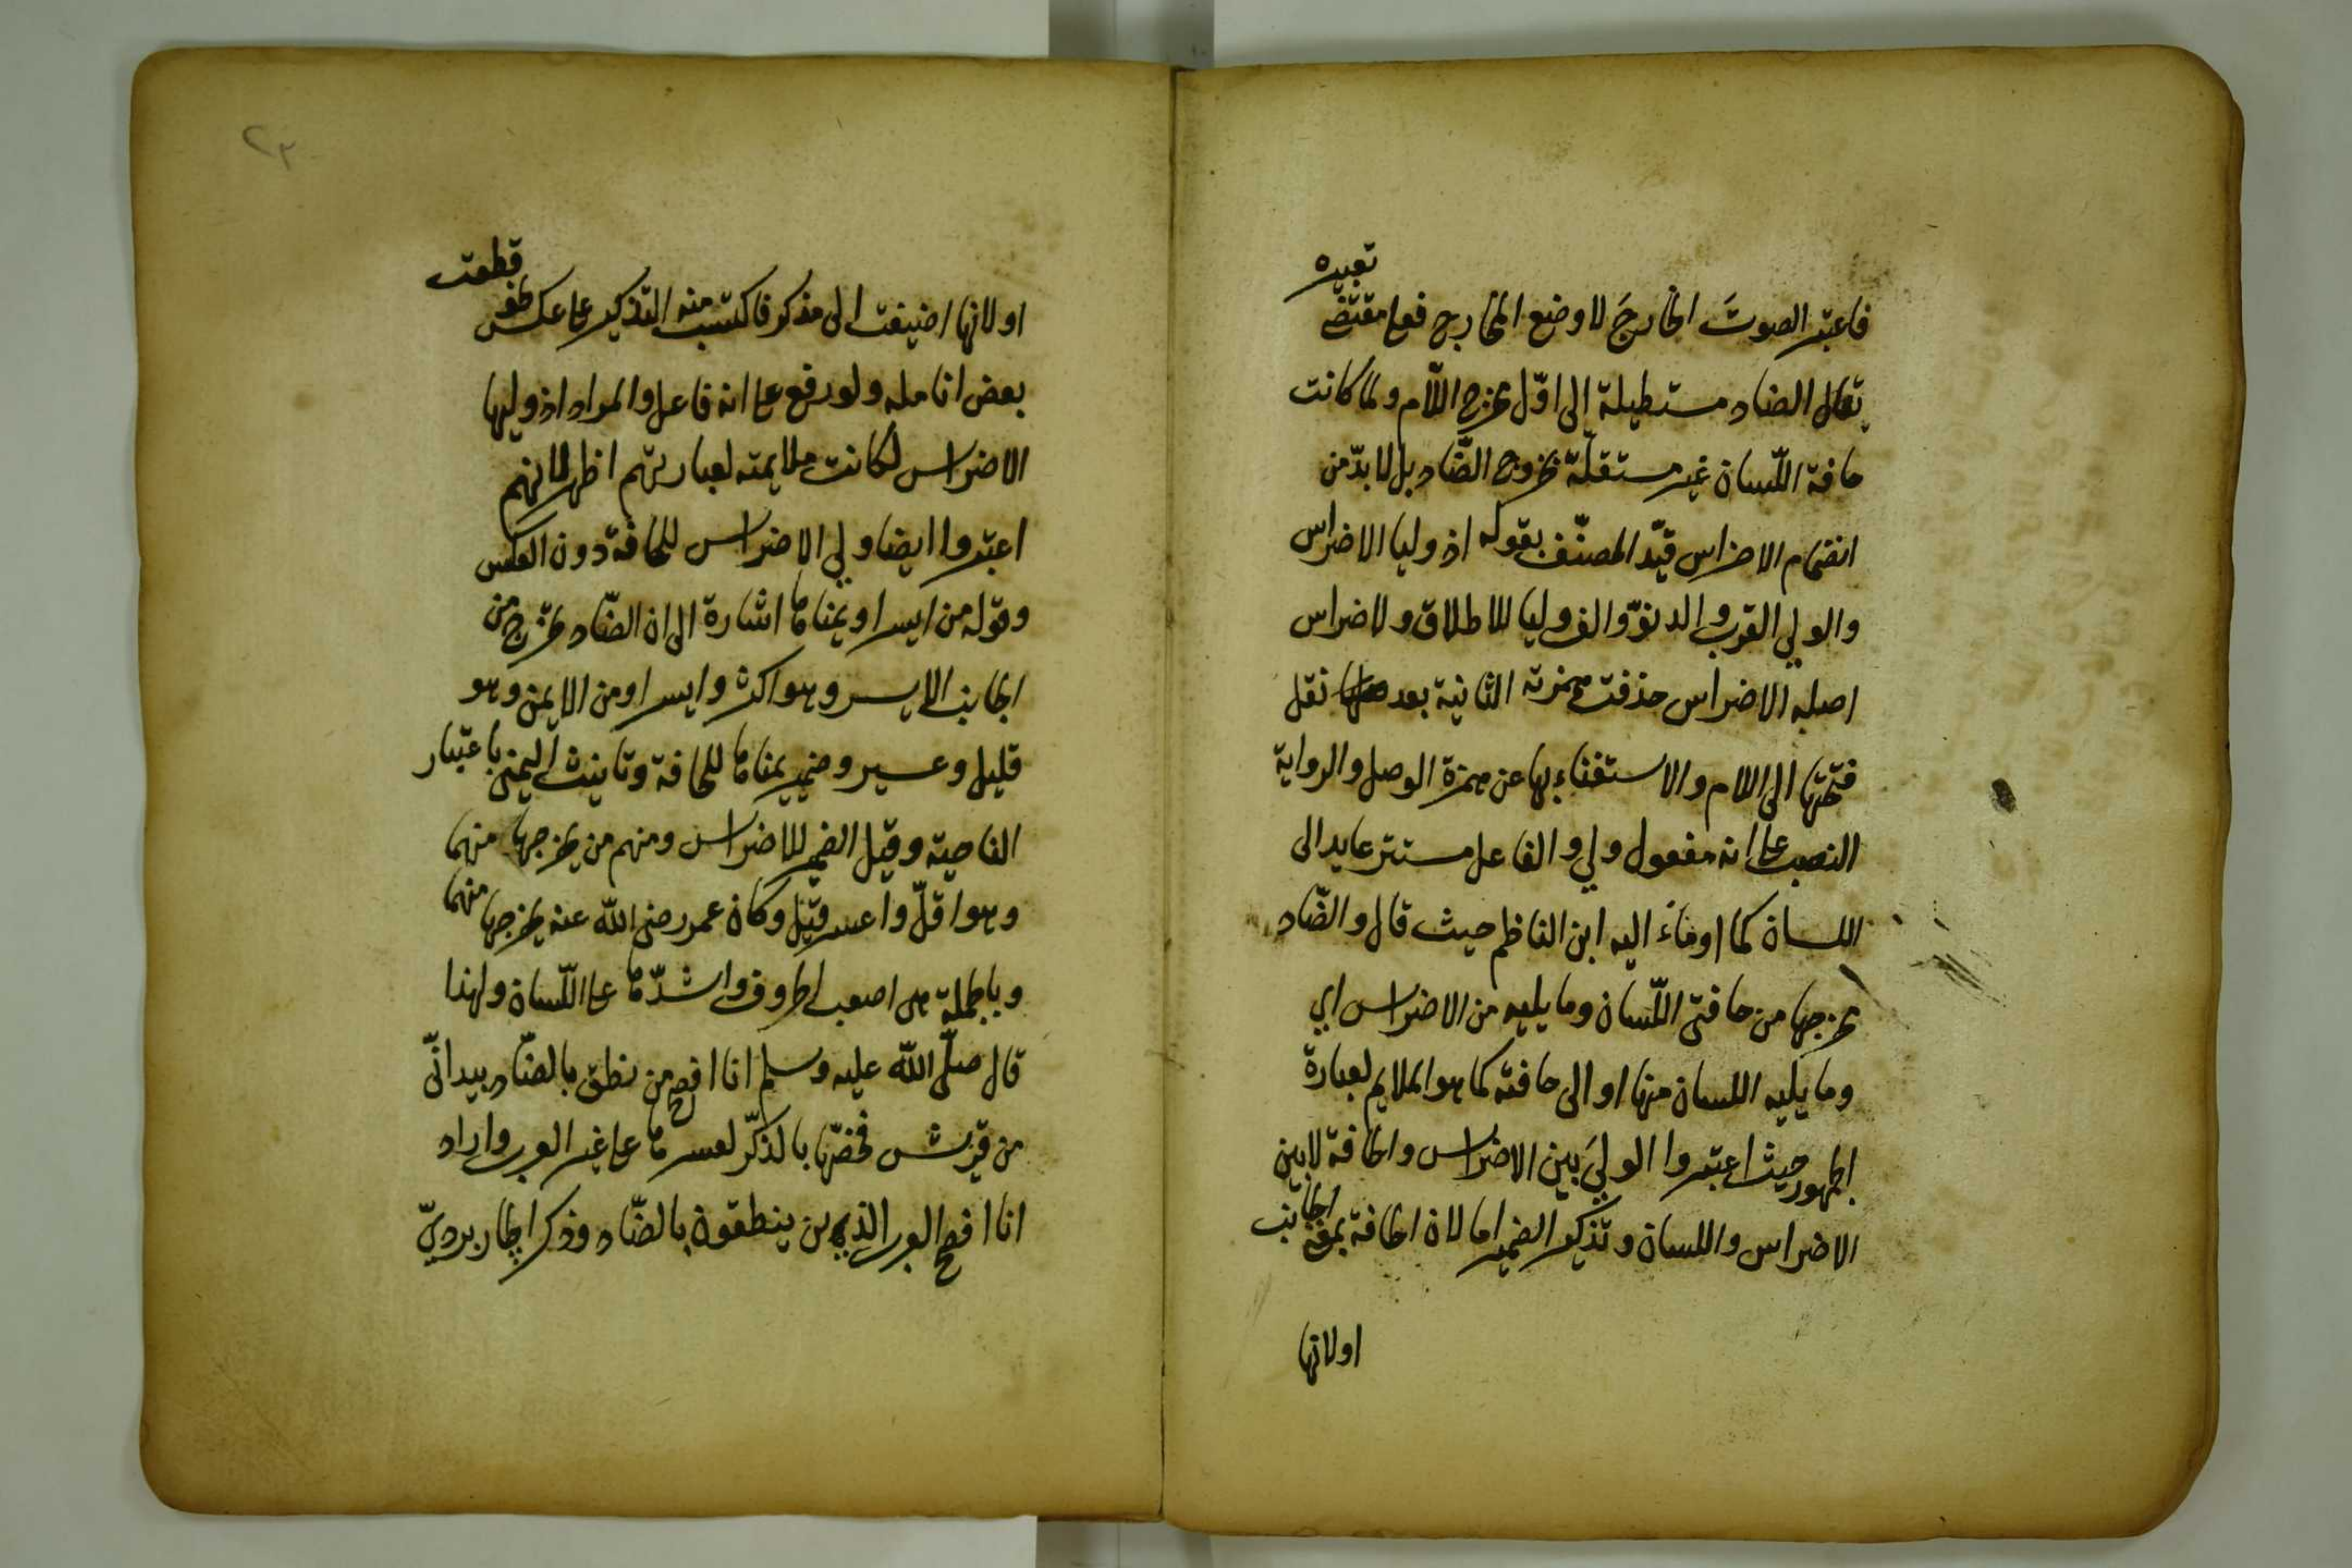 فاعتبر الصوتَ الخارجَ لا وضع المخارج فعلى مقتضى تعبيره
يقال الضاد مستطيلة إلى اوّل مخرج اللّام ولما كانت
حافة اللّسان غير مستقلّة بخروج الضّاد بل لا بدّ من
انضمام الاضراس قيّد المصنّف بقوله اذ وليا الاضراس
والولي القرب والدنوّ والف وليا للاطلاق ولاضراس
اصله الاضراس حذفت همزته الثانية بعد نقل
فتحتها الى اللام والاستغناء بها عن همزة الوصل والرواية
النصب على انه مفعول ولي والفاعل مستتر عايد الى
اللسان كما اومأء اليه ابن الناظم حيث قال والضّاد
مخرجها من حافتى اللّسان وما يليه من الاضراس اي
وما يليه اللسان منها او الى حافته كما هو الملايم لعبارة
الجمهور حيث اعتبروا الوليَ بين الاضراس والحافة لا بين
الاضراس واللسان وتذكير الضمير اما لان الحافة بمعنى الجانب
اولانها
٢٣
اولانها اضيفت الى مذكر فاكتسب منه التذكير على عكس نحو قطعت
بعض انامله ولو رفع على انه فاعل والمراد اذ وليها
الاضراس لكانت ملايمته لعبارتهم اظهر لانهم
اعتبروا ايضا ولي الاضراس للحافة دون العكس
وقوله من ايسر او يمناها اشارة الى ان الضّاد يخرج من
الجانب الايسر وهو اكثر وايسر او من الايمن وهو
قليل وعسير وضمير يمناها للحافة وتانيث اليمنى باعتبار
الناحية وقيل الضمير للاضراس ومنهم من يخرجها منهما
وهو اقلّ واعسر قيل وكان عمر رضى اللّه عنه يخرجها منهما
وبالجملة هى اصعب الحروف واشدّها على اللّسان ولهذا
قال صلّى اللّه عليه وسلم انا افصح من نطق بالضّاد بيد انّي
من قريش فخصّها بالذكر لعسرها على غير العرب واراد
انا افصح العرب الذين ينطقون بالضّاد وذكر الجاربرديّ